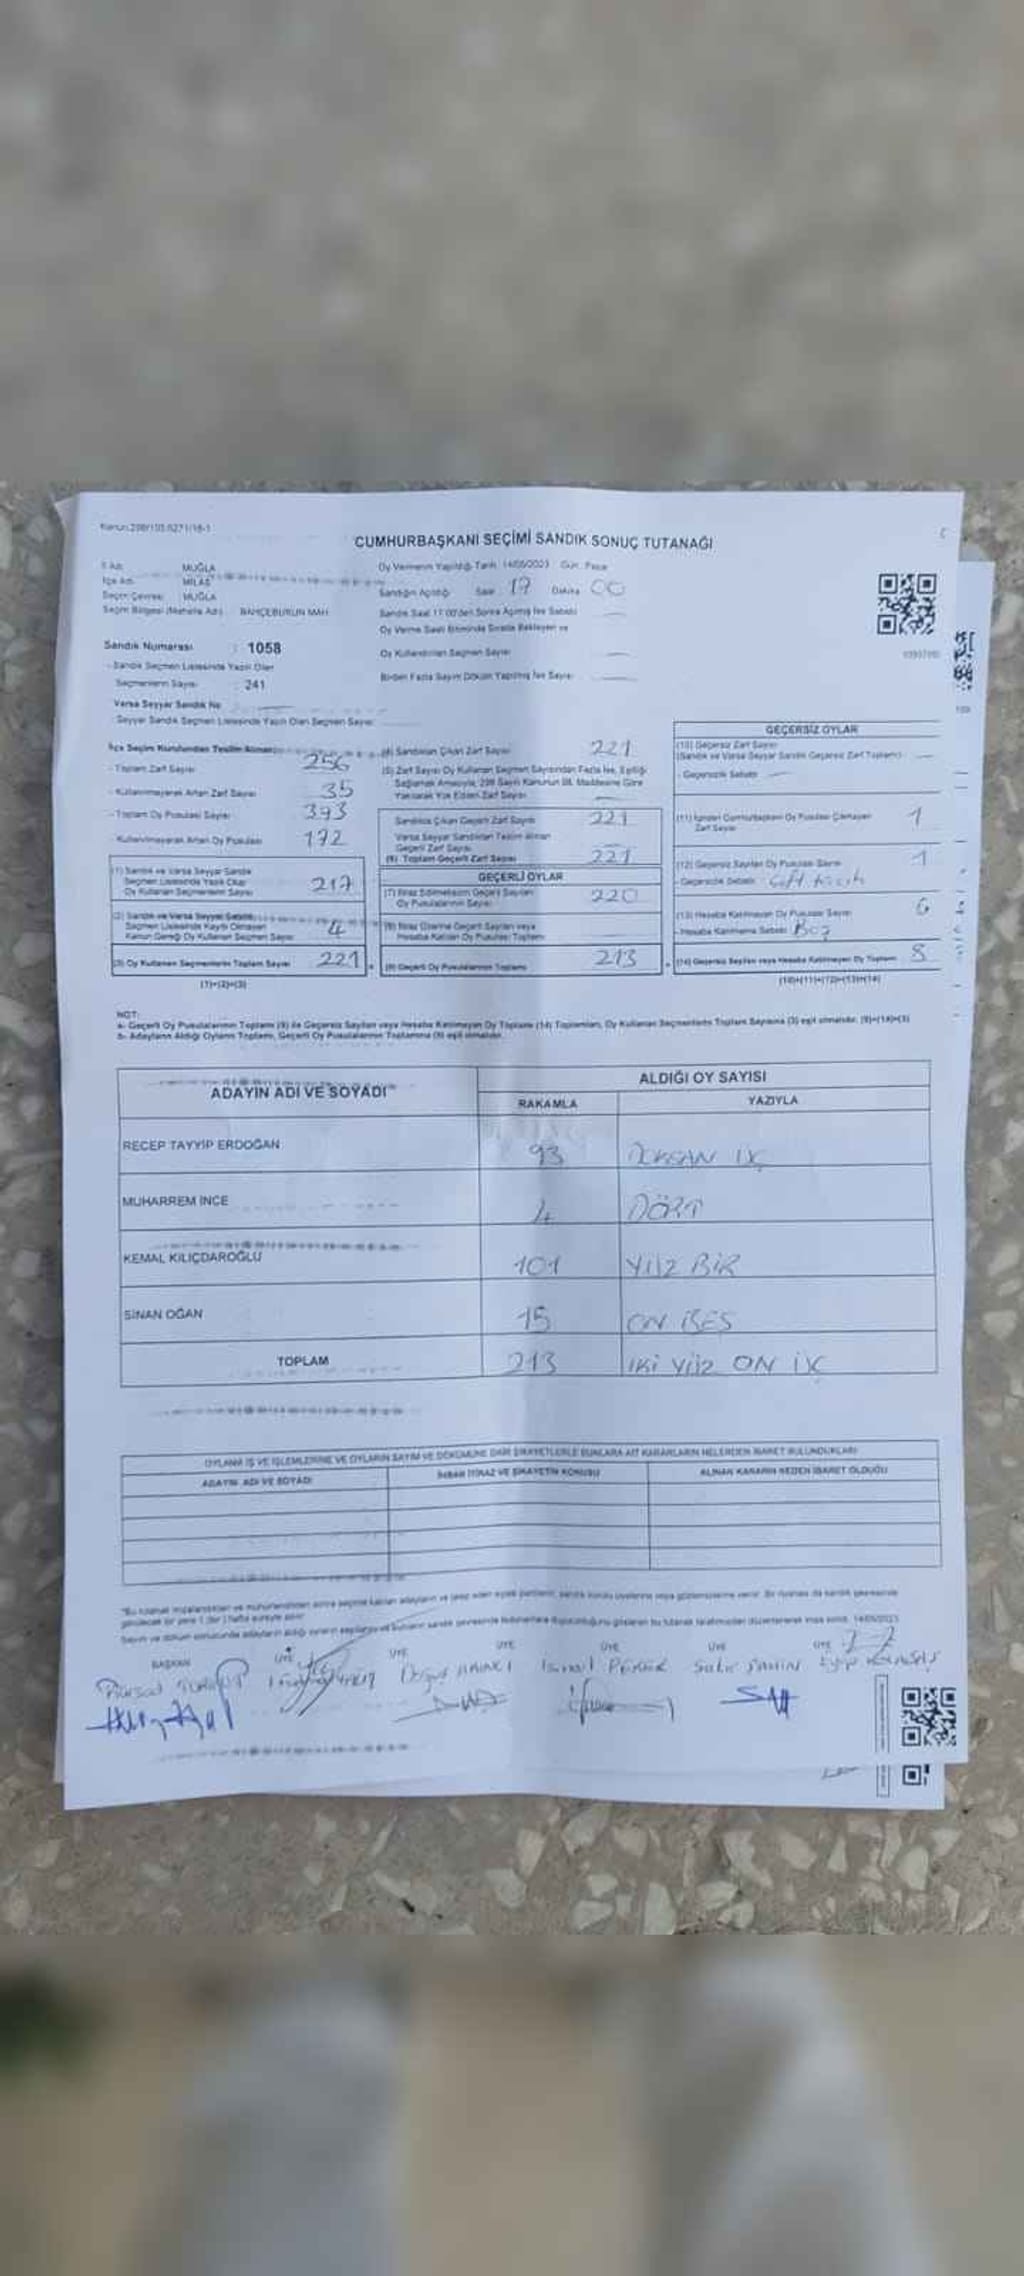 CUMHURBAŞKANI SEÇİMİ SANDIK SONUÇ TUTANAĞI
İl Adı MUĞLA
İlçe Adı MİLAS
Seçim Çevresi MUĞLA
Seçim Bölgesi (Mahalle Adı) BAHÇEBURUN MAH.
Oy Vermenin Yapıldığı Tarih 14/05/2023 Gün: Pazar
Sandığın Açıldığı Saat 17 Dakika 00
Sandık Saat 17:00'den Sonra Açılmış İse Sebebi
Oy Verme Saati Bitiminde Sırada Bekleyen ve
Oy Kullandırılan Seçmen Sayısı
Birden Fazla Sayım Döküm Yapılmış İse Sayısı
Sandık Numarası : 1058
- Sandık Seçmen Listesinde Yazılı Olan
Seçmenlerin Sayısı : 241
Varsa Seyyar Sandık No
- Seyyar Sandık Seçmen Listesinde Yazılı Olan Seçmen Sayısı
İlçe Seçim Kurulundan Teslim Alınan
- Toplam Zarf Sayısı 256
- Kullanılmayarak Artan Zarf Sayısı 35
- Toplam Oy Pusulası Sayısı 393
- Kullanılmayarak Artan Oy Pusulası 172
(1) Sandık ve Varsa Seyyar Sandık
Seçmen Listesinde Yazılı Olup
Oy Kullanan Seçmenlerin Sayısı 217
(2) Sandık ve Varsa Seyyar Sandık
Seçmen Listesinde Kayıtlı Olmayan
Kanun Gereği Oy Kullanan Seçmen Sayısı 4
(3) Oy Kullanan Seçmenlerin Toplam Sayısı 221
(1)+(2)=(3)
(4) Sandıktan Çıkan Zarf Sayısı 221
(5) Zarf Sayısı Oy Kullanan Seçmen Sayısından Fazla İse, Eşitliği
Sağlamak Amacıyla, 298 Sayılı Kanunun 98. Maddesine Göre
Yakılarak Yok Edilen Zarf Sayısı
Sandıkta Çıkan Geçerli Zarf Sayısı 221
Varsa Seyyar Sandıktan Teslim Alınan
Geçerli Zarf Sayısı
(6) Toplam Geçerli Zarf Sayısı 221
GEÇERLİ OYLAR
(7) İtiraz Edilmeksizin Geçerli Sayılan
Oy Pusulalarının Sayısı 220
(8) İtiraz Üzerine Geçerli Sayılan veya
Hesaba Katılan Oy Pusulası Toplamı
(9) Geçerli Oy Pusulalarının Toplamı 213
GEÇERSİZ OYLAR
(10) Geçersiz Zarf Sayısı
(Sandık ve Varsa Seyyar Sandık Geçersiz Zarf Toplamı)
- Geçersizlik Sebebi
(11) İçinden Cumhurbaşkanı Oy Pusulası Çıkmayan
Zarf Sayısı 1
(12) Geçersiz Sayılan Oy Pusulası Sayısı 1
- Geçersizlik Sebebi
(13) Hesaba Katılmayan Oy Pusulası Sayısı 6
- Hesaba Katılmama Sebebi Boş
(14) Geçersiz Sayılan veya Hesaba Katılmayan Oy Toplamı 8
(10)+(11)+(12)+(13)=(14)
NOT:
a- Geçerli Oy Pusulalarının Toplamı (9) ile Geçersiz Sayılan veya Hesaba Katılmayan Oy Toplamı (14) Toplamları, Oy Kullanan Seçmenlerin Toplam Sayısına (3) eşit olmalıdır. (9)+(14)=(3)
b- Adayların Aldığı Oyların Toplamı, Geçerli Oy Pusulalarının Toplamına (9) eşit olmalıdır.
ADAYIN ADI VE SOYADI ALDIĞI OY SAYISI
RAKAMLA YAZIYLA
RECEP TAYYİP ERDOĞAN 93 DOKSAN ÜÇ
MUHARREM İNCE 4 DÖRT
KEMAL KILIÇDAROĞLU 101 YÜZ BİR
SİNAN OĞAN 15 ON BEŞ
TOPLAM 213 İKİ YÜZ ON ÜÇ
OYLAMA İŞ VE İŞLEMLERİNE VE OYLARIN SAYIM VE DÖKÜMÜNE DAİR ŞİKAYETLERLE BUNLARA AİT KARARLARIN NELERDEN İBARET BULUNDUKLARI
ADAYIN ADI VE SOYADI İHBAR İTİRAZ VE ŞİKAYETİN KONUSU ALINAN KARARIN NEDEN İBARET OLDUĞU
BAŞKAN ÜYE ÜYE ÜYE ÜYE ÜYE ÜYE